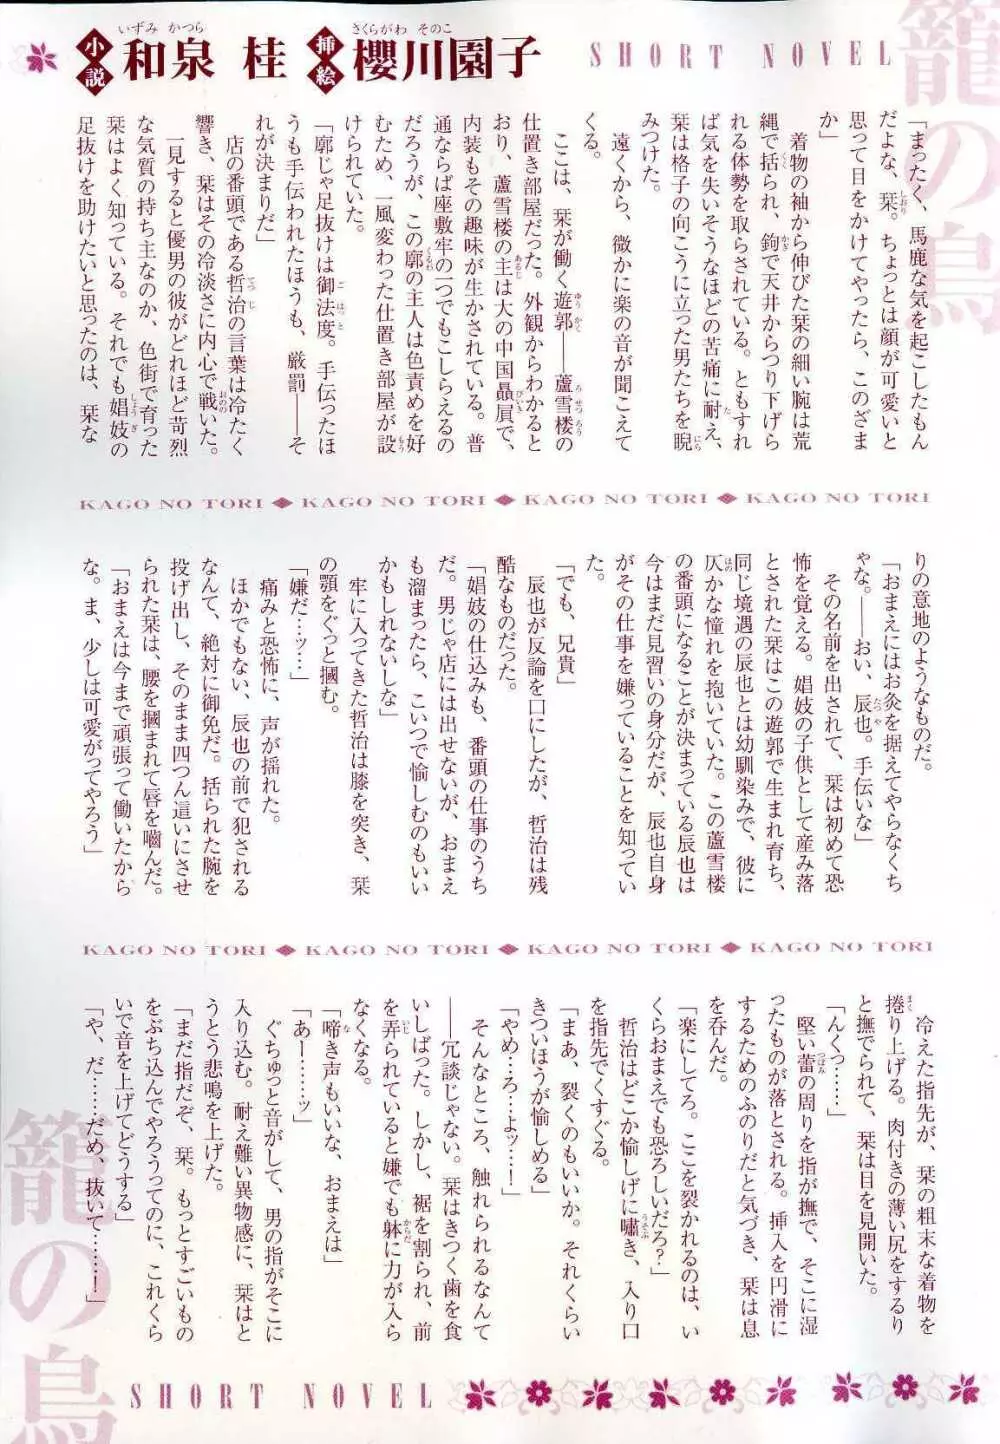 籠の鳥
SHORT NOVEL
小説 和泉 桂 挿絵 櫻川園子
いずみ かつら さくらがわ そのこ
「まったく、馬鹿な気を起こしたもん
だよな、栞。ちょっとは顔が可愛いと
思って目をかけてやったら、このざま
か」
着物の袖から伸びた栞の細い腕は荒
縄で括られ、鉤で天井からつり下げら
れる体勢を取らされている。ともすれ
ば気を失いそうなほどの苦痛に耐え、
栞は格子の向こうに立った男たちを睨
みつけた。
遠くから、微かに楽の音が聞こえて
くる。
ここは、栞が働く遊郭――蘆雪楼の
仕置き部屋だった。外観からわかると
おり、蘆雪楼の主は大の中国贔屓で、
内装もその趣味が生かされている。普
通ならば座敷牢の一つでもこしらえるの
だろうが、この廓の主人は色責めを好
むため、一風変わった仕置き部屋が設
けられていた。
「廓じゃ足抜けは御法度。手伝ったほ
うも手伝われたほうも、厳罰――そ
れが決まりだ」
店の番頭である哲治の言葉は冷たく
響き、栞はその冷淡さに内心で戦いた。
一見すると優男の彼がどれほど苛烈
な気質の持ち主なのか、色街で育った
栞はよく知っている。それでも娼妓の
足抜けを助けたいと思ったのは、栞な
KAGO NO TORI◆KAGO NO TORI◆KAGO NO TORI◆KAGO NO TORI
りの意地のようなものだ。
「おまえにはお灸を据えてやらなくち
ゃな。――おい、辰也。手伝いな」
その名前を出されて、栞は初めて恐
怖を覚える。娼妓の子供として産み落
とされた栞はこの遊郭で生まれ育ち、
同じ境遇の辰也とは幼馴染みで、彼に
仄かな憧れを抱いていた。この蘆雪楼
の番頭になることが決まっている辰也は
今はまだ見習いの身分だが、辰也自身
がその仕事を嫌っていることを知ってい
た。
「でも、兄貴」
辰也が反論を口にしたが、哲治は残
酷なものだった。
「娼妓の仕込みも、番頭の仕事のうち
だ。男じゃ店には出せないが、おまえ
も溜まったら、こいつで愉しむのもいい
かもしれないしな」
牢に入ってきた哲治は膝を突き、栞
の顎をぐっと摑む。
「嫌だ…ッ…」
痛みと恐怖に、声が揺れた。
ほかでもない、辰也の前で犯される
なんて、絶対に御免だ。括られた腕を
投げ出し、そのまま四つん這いにさせ
られた栞は、腰を摑まれて唇を嚙んだ。
「おまえは今まで頑張って働いたから
な。ま、少しは可愛がってやろう」
KAGO NO TORI◆KAGO NO TORI◆KAGO NO TORI◆KAGO NO TORI
冷えた指先が、栞の粗末な着物を
捲り上げる。肉付きの薄い尻をするり
と撫でられて、栞は目を見開いた。
「んくっ……」
堅い蕾の周りを指が撫で、そこに湿
ったものが落とされる。挿入を円滑に
するためのふのりだと気づき、栞は息
を呑んだ。
「楽にしてろ。ここを裂かれるのは、い
くらおまえでも恐ろしいだろ?」
哲治はどこか愉しげに嘯き、入り口
を指先でくすぐる。
「まあ、裂くのもいいか。それくらい
きついほうが愉しめる」
「やめ…ろ…よッ…!」
そんなところ、触れられるなんて
――冗談じゃない。栞はきつく歯を食
いしばった。しかし、裾を割られ、前
を弄られていると嫌でも躰に力が入ら
なくなる。
「啼き声もいいな、おまえは」
「あー……ッ」
ぐちゅっと音がして、男の指がそこに
入り込む。耐え難い異物感に、栞はと
うとう悲鳴を上げた。
「まだ指だぞ、栞。もっとすごいもの
をぶち込んでやろうってのに、これくら
いで音を上げてどうする」
「や、だ……だめ、抜いて……!」
籠の鳥
SHORT NOVEL